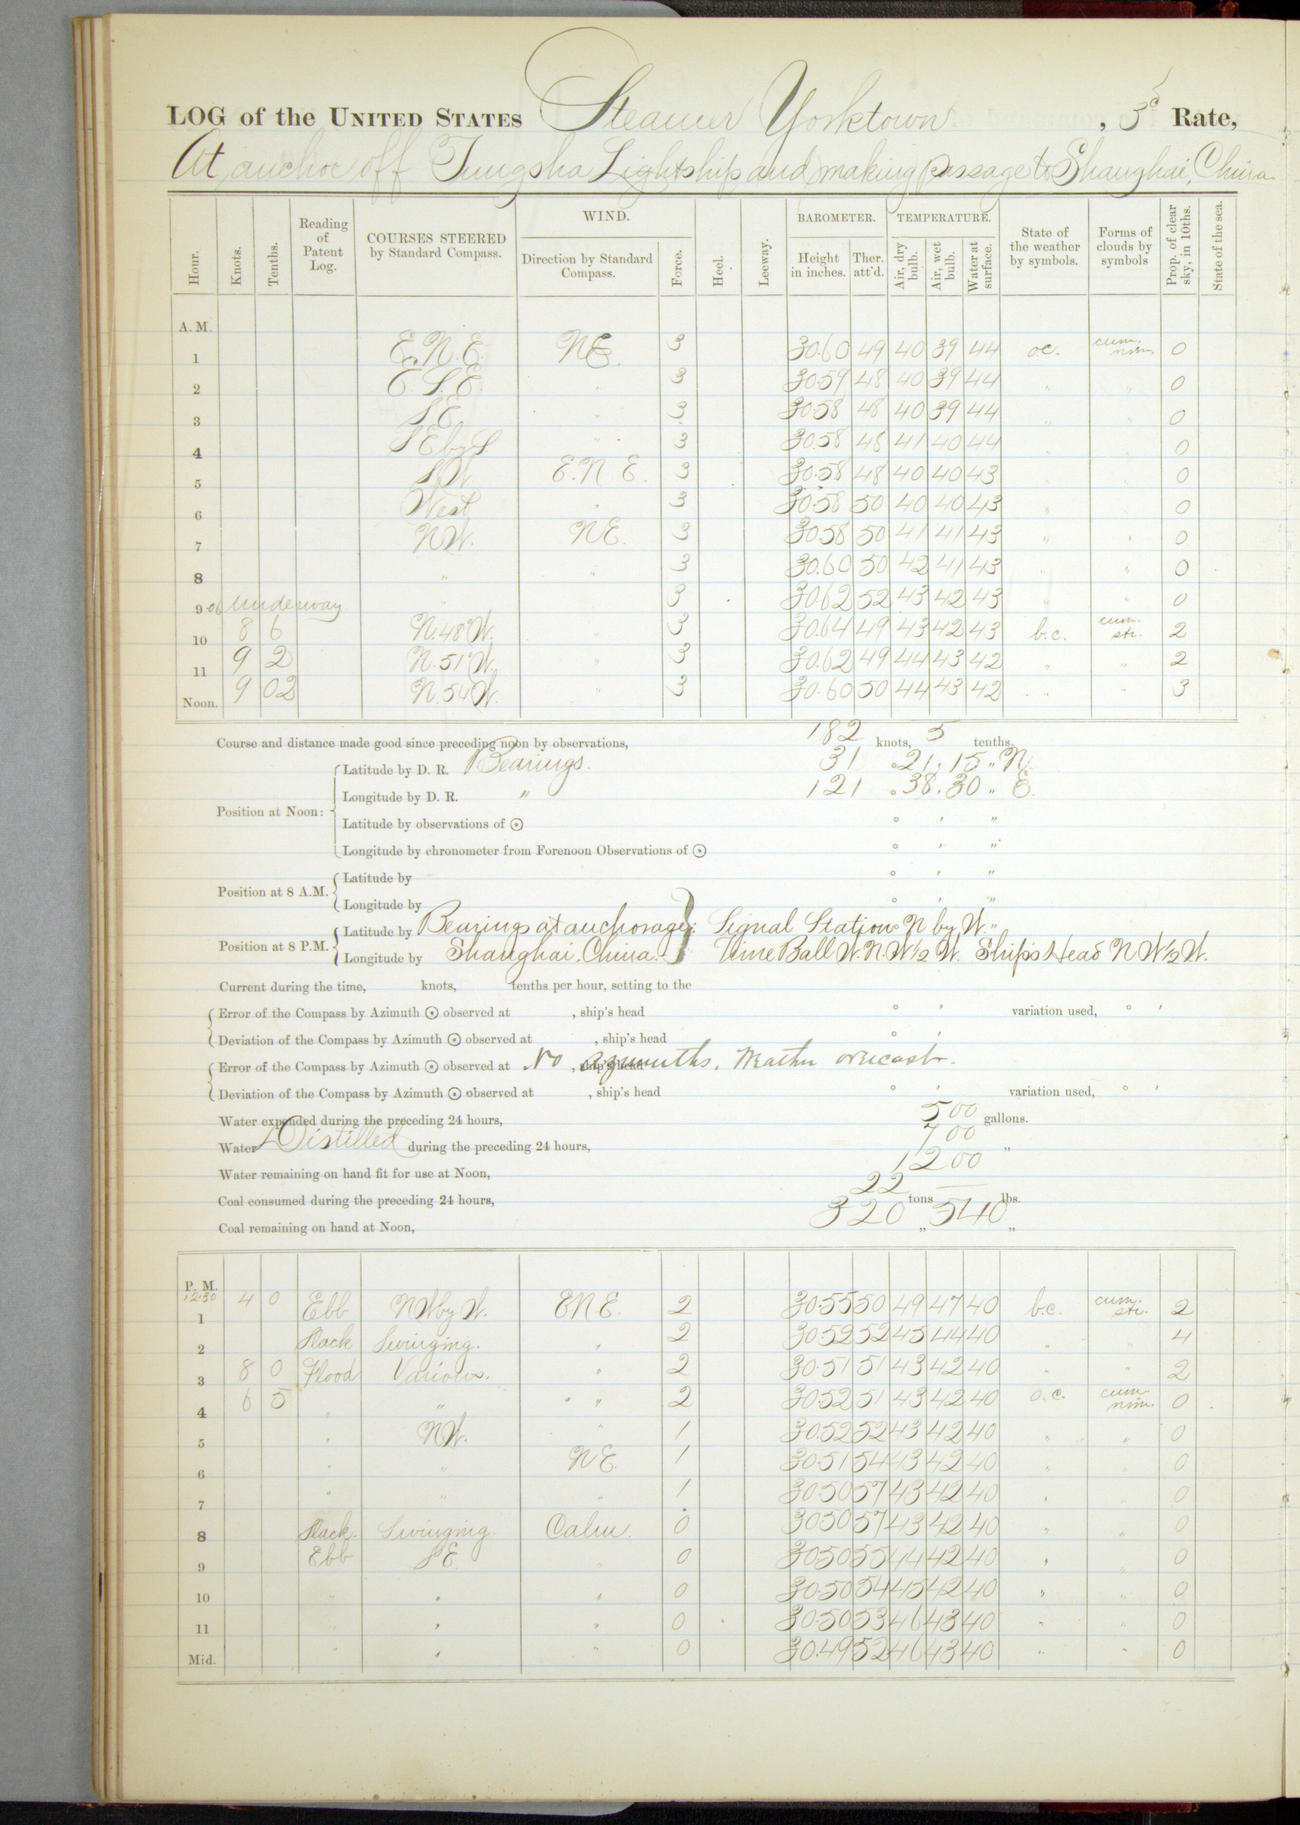 LOG of the UNITED STATES Steamer Yorktown, 3d Rate,
At anchor off Tungsha Lightship and making passage to Shanghai, China.
Hour. Knots. Tenths. Reading of Patent Log. COURSES STEERED by Standard Compass. WIND. Direction by Standard Compass. Force. Heel. Leeway. BAROMETER. Height in inches. Ther. att'd. TEMPERATURE. Air, dry bulb. Air, wet bulb. Water at surface. State of the weather by symbols. Forms of clouds by symbols Prop. of clear sky, in 10ths. State of the sea.
A. M.
1 E.N.E. NE. 3 30.60 49 40 39 44 oc. cum. nim. 0
2 E S.E. " 3 30.59 48 40 39 44 " " 0
3 SE " 3 30.58 48 40 39 44 " " 0
4 SE by S " 3 30.58 48 41 40 44 " " 0
5 S.W. E.N.E. 3 30.58 48 40 40 43 " " 0
6 West " 3 30.58 50 40 40 43 " " 0
7 NW. NE. 3 30.58 50 41 41 43 " " 0
8 " " 3 30.60 50 42 41 43 " " 0
9 underway " " 3 30.62 52 43 42 43 " " 0
10 8 6 N.48W. " 3 30.64 49 43 42 43 b.c. cum. str. 2
11 9 2 N.51W. " 3 30.62 49 44 43 42 " " 2
Noon. 9 02 N.54W. " 3 30.60 50 44 43 42 " " 3
Course and distance made good since preceding noon by observations, 182 knots, 5 tenths.
Position at Noon: Latitude by D. R. Bearings. 31 ° 21 ' 15 " N.
Longitude by D. R. " 121 ° 38 ' 30 " E.
Latitude by observations of ☉ ° ' "
Longitude by chronometer from Forenoon Observations of ☉ ° ' "
Position at 8 A.M. Latitude by ° ' "
Longitude by ° ' "
Position at 8 P.M. Latitude by Bearings at anchorage} Signal Station N by W. "
Longitude by Shanghai, China. Time Ball W.N.W½ W. Ship's Head N W½W.
Current during the time, knots, tenths per hour, setting to the
Error of the Compass by Azimuth ☉ observed at , ship's head ° ' variation used, ° '
Deviation of the Compass by Azimuth ☉ observed at , ship's head ° '
Error of the Compass by Azimuth ☉ observed at No , ship's head azimuths. Weather overcast.
Deviation of the Compass by Azimuth ☉ observed at , ship's head ° ' variation used, ° '
Water expended during the preceding 24 hours, 500 gallons.
Water Distilled during the preceding 24 hours, 700 "
Water remaining on hand fit for use at Noon, 1200
Coal consumed during the preceding 24 hours, 22 tons — lbs.
Coal remaining on hand at Noon, 320 " 540 "
P. M.
12.30
1 4 0 Ebb NW by W. ENE. 2 30.55 50 49 47 40 b.c. cum. str. 2
2 Slack Swinging. " 2 30.52 52 45 44 40 " " 4
3 8 0 Flood Various. " 2 30.51 51 43 42 40 " " 2
4 6 5 " " " " 2 30.52 51 43 42 40 o.c. cum. nim. 0
5 " NW. " 1 30.52 52 43 42 40 " " 0
6 " " NE. 1 30.51 54 43 42 40 " " 0
7 " " " 1 30.50 57 43 42 40 " " 0
8 Slack. Swinging. Calm 0 30.50 57 43 42 40 " " 0
9 Ebb SE. " 0 30.50 55 44 42 40 " " 0
10 " " " 0 30.50 54 45 42 40 " " 0
11 " " " 0 30.50 53 46 43 40 " " 0
Mid. " " " 0 30.49 52 46 43 40 " " 0